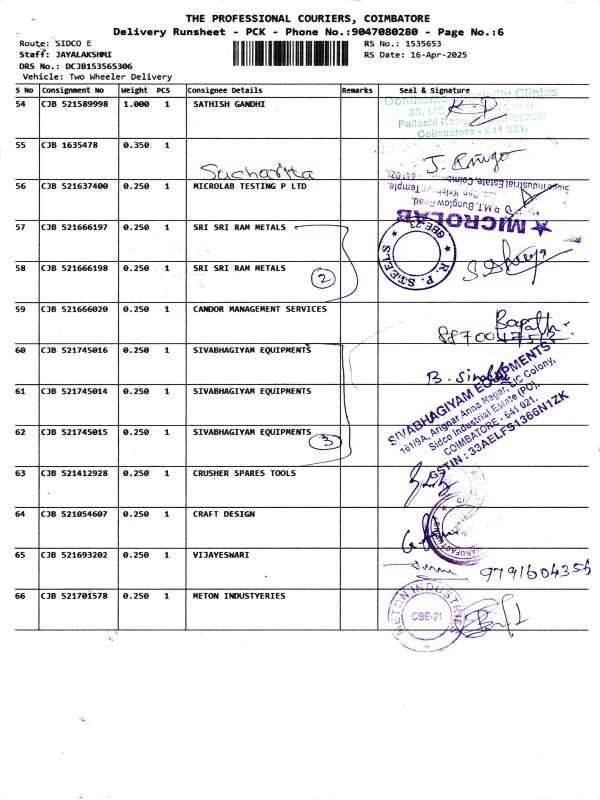 THE PROFESSIONAL COURIERS, COIMBATORE
Delivery Runsheet - PCK - Phone No.:9047080280 - Page No.:6
Route: SIDCO E
RS No.: 1535653
Staff: JAYALAKSHMI
RS Date: 16-Apr-2025
DRS No.: DCJB153565306
Vehicle: Two Wheeler Delivery
S No Consignment No Weight PCS Consignee Details Remarks Seal & Signature
54 CJB 521589998 1.000 1 SATHISH GANDHI
Speciality Clinics
33, LIC Street
Pollachi Road, SIDCO
Coimbatore - 641 021.
55 CJB 1635478 0.350 1
Sucharita
56 CJB 521637400 0.250 1 MICROLAB TESTING P LTD
Sidco Industrial Estate, Coimbatore - 641 021
Temple,
R.M.T. Bunglow Road,
MICROLAB
57 CJB 521666197 0.250 1 SRI SRI RAM METALS
R. P. STEELS
CBE-23
58 CJB 521666198 0.250 1 SRI SRI RAM METALS
2
59 CJB 521666020 0.250 1 CANDOR MANAGEMENT SERVICES
60 CJB 521745016 0.250 1 SIVABHAGIYAM EQUIPMENTS
61 CJB 521745014 0.250 1 SIVABHAGIYAM EQUIPMENTS
62 CJB 521745015 0.250 1 SIVABHAGIYAM EQUIPMENTS
3
SIVABHAGIYAM EQUIPMENTS
161/9A, Arignar Anna Nagar, LIC Colony,
Sidco Industrial Estate (PO),
COIMBATORE - 641 021.
GSTIN : 33AELFS1366N1ZK
63 CJB 521412928 0.250 1 CRUSHER SPARES TOOLS
64 CJB 521054607 0.250 1 CRAFT DESIGN
65 CJB 521693202 0.250 1 VIJAYESWARI
9791604355
66 CJB 521701578 0.250 1 METON INDUSTYERIES
METON INDUSTRIES
CBE-21